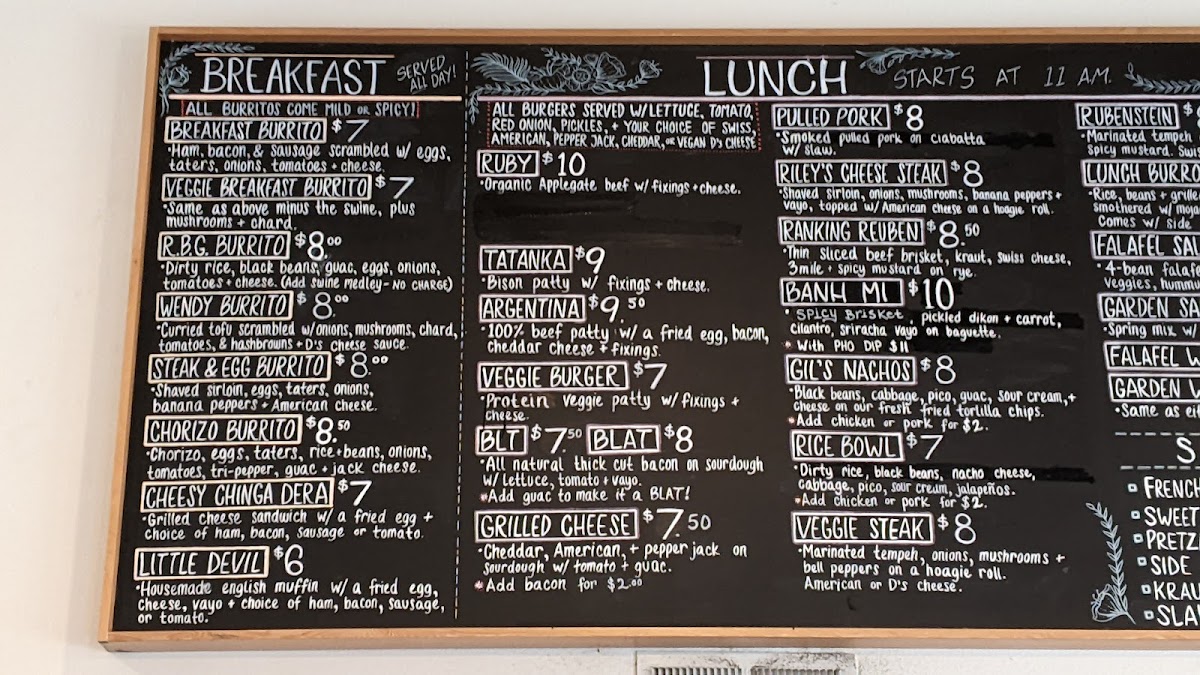 BREAKFAST SERVED ALL DAY!
ALL BURRITOS COME MILD OR SPICY!
BREAKFAST BURRITO $7
•Ham, bacon, & sausage scrambled w/ eggs,
taters, onions, tomatoes + cheese.
VEGGIE BREAKFAST BURRITO $7
•Same as above minus the swine, plus
mushrooms + chard.
R.B.G. BURRITO $8.00
•Dirty rice, black beans, guac, eggs, onions,
tomatoes + cheese. (Add swine medley - NO CHARGE)
WENDY BURRITO $8.00
•Curried tofu scrambled w/onions, mushrooms, chard,
tomatoes, & hashbrowns + D's cheese sauce.
STEAK & EGG BURRITO $8.00
•Shaved sirloin, eggs, taters, onions,
banana peppers + American cheese.
CHORIZO BURRITO $8.50
•Chorizo, eggs, taters, rice+beans, onions,
tomatoes, tri-pepper, guac + jack cheese.
CHEESY CHINGA DERA $7
•Grilled cheese sandwich w/ a fried egg +
choice of ham, bacon, sausage or tomato.
LITTLE DEVIL $6
•Housemade english muffin w/ a fried egg,
cheese, vayo + choice of ham, bacon, sausage,
or tomato.
LUNCH STARTS AT 11 A.M.
ALL BURGERS SERVED W/LETTUCE, TOMATO,
RED ONION, PICKLES, + YOUR CHOICE OF SWISS,
AMERICAN, PEPPER JACK, CHEDDAR, OR VEGAN D'S CHEESE
RUBY $10
•Organic Applegate beef w/ fixings + cheese.
TATANKA $9
•Bison patty w/ fixings + cheese.
ARGENTINA $9.50
•100% beef patty w/ a fried egg, bacon,
cheddar cheese + fixings.
VEGGIE BURGER $7
•Protein veggie patty w/ fixings +
cheese.
BLT $7.50 BLAT $8
•All natural thick cut bacon on sourdough
w/ lettuce, tomato + vayo.
*Add guac to make it a BLAT!
GRILLED CHEESE $7.50
•Cheddar, American, + pepper jack on
sourdough w/ tomato + guac.
*Add bacon for $2.00
PULLED PORK $8
•Smoked pulled pork on ciabatta
w/ slaw.
RILEY'S CHEESE STEAK $8
•Shaved sirloin, onions, mushrooms, banana peppers +
vayo, topped w/ American cheese on a hoagie roll.
RANKING REUBEN $8.50
•Thin sliced beef brisket, kraut, swiss cheese,
3mile + spicy mustard on rye.
BANH MI $10
•SPICY BRISKET, pickled dikon + carrot,
cilantro, sriracha vayo on baguette.
* With PHO DIP $11
GIL'S NACHOS $8
•Black beans, cabbage, pico, guac, sour cream, +
cheese on our fresh fried tortilla chips.
*Add chicken or pork for $2.
RICE BOWL $7
•Dirty rice, black beans, nacho cheese,
cabbage, pico, sour cream, jalapeños.
*Add chicken or pork for $2.
VEGGIE STEAK $8
•Marinated tempeh, onions, mushrooms +
bell peppers on a hoagie roll.
American or D's cheese.
RUBENSTEIN $
•Marinated tempeh
spicy mustard. Swis
LUNCH BURRO
•Rice, beans + grille
smothered w/
Comes w/ side
FALAFEL SA
•4-bean falaf
veggies, hummu
GARDEN SA
Spring mix w/
FALAFEL W
GARDEN W
•Same as ei
S
FRENCH
SWEET
PRETZ
SIDE
KRAU
SLA